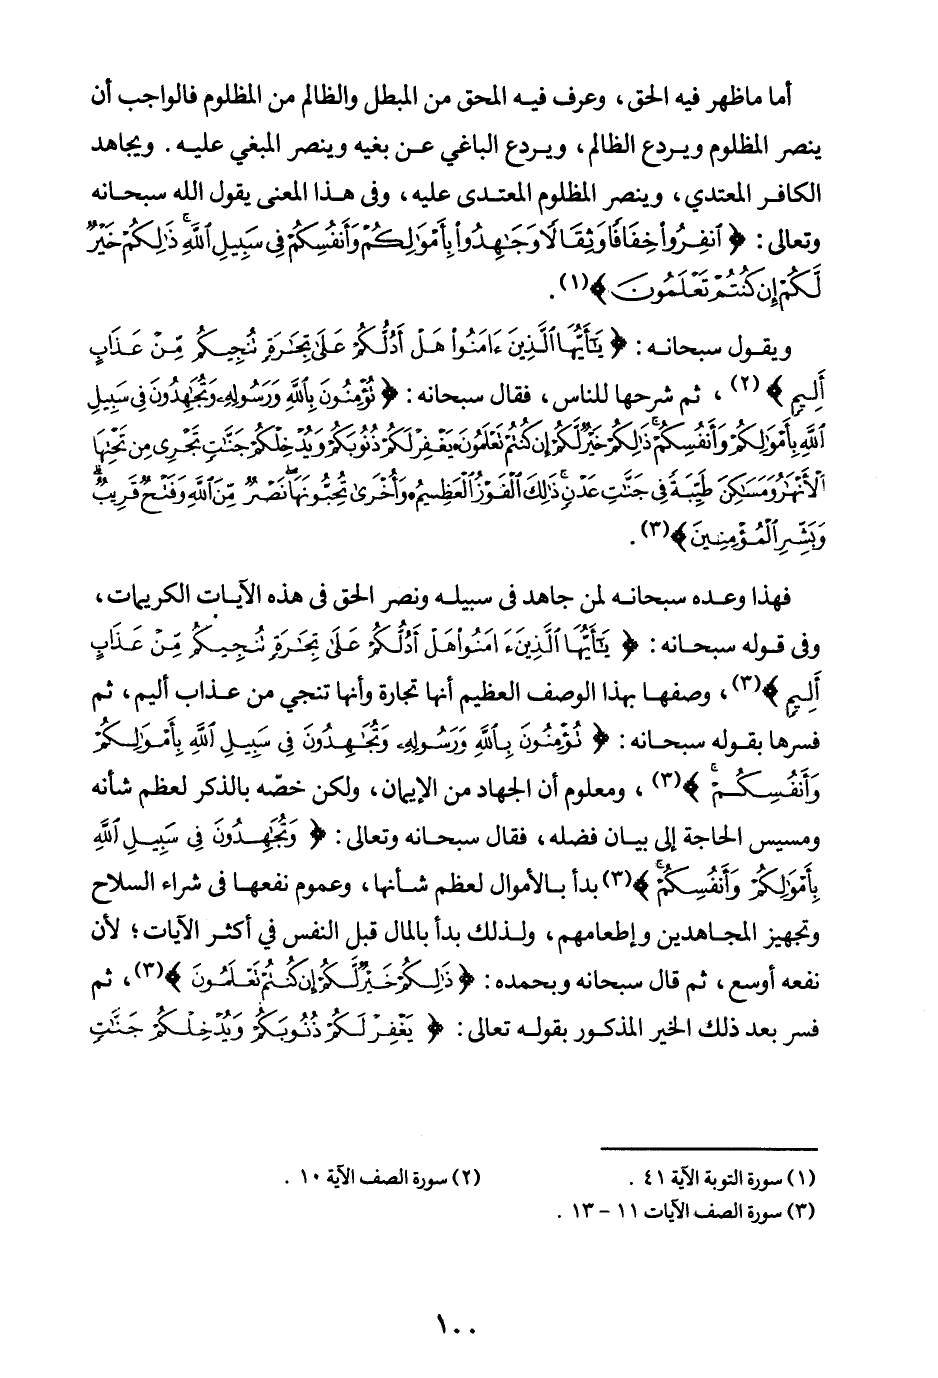 أما ماظهر فيه الحق، وعرف فيه المحق من المبطل والظالم من المظلوم فالواجب أن
ينصر المظلوم ويردع الظالم، ويردع الباغي عن بغيه وينصر المبغي عليه. ويجاهد
الكافر المعتدي، وينصر المظلوم المعتدى عليه، وفى هذا المعنى يقول الله سبحانه
وتعالى: ﴿ ٱنفِرُوا۟ خِفَافًا وَثِقَالًا وَجَـٰهِدُوا۟ بِأَمْوَٰلِكُمْ وَأَنفُسِكُمْ فِى سَبِيلِ ٱللَّهِ ۚ ذَٰلِكُمْ خَيْرٌ
لَّكُمْ إِن كُنتُمْ تَعْلَمُونَ ﴾(١).
ويقول سبحانه: ﴿ يَـٰٓأَيُّهَا ٱلَّذِينَ ءَامَنُوا۟ هَلْ أَدُلُّكُمْ عَلَىٰ تِجَـٰرَةٍ تُنجِيكُم مِّنْ عَذَابٍ
أَلِيمٍ ﴾(٢)، ثم شرحها للناس، فقال سبحانه: ﴿ تُؤْمِنُونَ بِٱللَّهِ وَرَسُولِهِۦ وَتُجَـٰهِدُونَ فِى سَبِيلِ
ٱللَّهِ بِأَمْوَٰلِكُمْ وَأَنفُسِكُمْ ۚ ذَٰلِكُمْ خَيْرٌ لَّكُمْ إِن كُنتُمْ تَعْلَمُونَ يَغْفِرْ لَكُمْ ذُنُوبَكُمْ وَيُدْخِلْكُمْ جَنَّـٰتٍ تَجْرِى مِن تَحْتِهَا
ٱلْأَنْهَـٰرُ وَمَسَـٰكِنَ طَيِّبَةً فِى جَنَّـٰتِ عَدْنٍ ۚ ذَٰلِكَ ٱلْفَوْزُ ٱلْعَظِيمُ وَأُخْرَىٰ تُحِبُّونَهَا ۖ نَصْرٌ مِّنَ ٱللَّهِ وَفَتْحٌ قَرِيبٌ ۗ
وَبَشِّرِ ٱلْمُؤْمِنِينَ ﴾(٣).
فهذا وعده سبحانه لمن جاهد فى سبيله ونصر الحق فى هذه الآيات الكريمات،
وفى قوله سبحانه: ﴿ يَـٰٓأَيُّهَا ٱلَّذِينَ ءَامَنُوا۟ هَلْ أَدُلُّكُمْ عَلَىٰ تِجَـٰرَةٍ تُنجِيكُم مِّنْ عَذَابٍ
أَلِيمٍ ﴾(٣)، وصفها بهذا الوصف العظيم أنها تجارة وأنها تنجي من عذاب أليم، ثم
فسرها بقوله سبحانه: ﴿ تُؤْمِنُونَ بِٱللَّهِ وَرَسُولِهِۦ وَتُجَـٰهِدُونَ فِى سَبِيلِ ٱللَّهِ بِأَمْوَٰلِكُمْ
وَأَنفُسِكُمْ ۚ ﴾(٣)، ومعلوم أن الجهاد من الإيمان، ولكن خصّه بالذكر لعظم شأنه
ومسيس الحاجة إلى بيان فضله، فقال سبحانه وتعالى: ﴿ وَتُجَـٰهِدُونَ فِى سَبِيلِ ٱللَّهِ
بِأَمْوَٰلِكُمْ وَأَنفُسِكُمْ ۚ ﴾(٣) بدأ بالأموال لعظم شأنها، وعموم نفعها فى شراء السلاح
وتجهيز المجاهدين وإطعامهم، ولذلك بدأ بالمال قبل النفس في أكثر الآيات؛ لأن
نفعه أوسع، ثم قال سبحانه وبحمده: ﴿ ذَٰلِكُمْ خَيْرٌ لَّكُمْ إِن كُنتُمْ تَعْلَمُونَ ﴾(٣)، ثم
فسر بعد ذلك الخير المذكور بقوله تعالى: ﴿ يَغْفِرْ لَكُمْ ذُنُوبَكُمْ وَيُدْخِلْكُمْ جَنَّـٰتٍ
(١) سورة التوبة الآية ٤١ . (٢) سورة الصف الآية ١٠ .
(٣) سورة الصف الآيات ١١ – ١٣ .
١٠٠